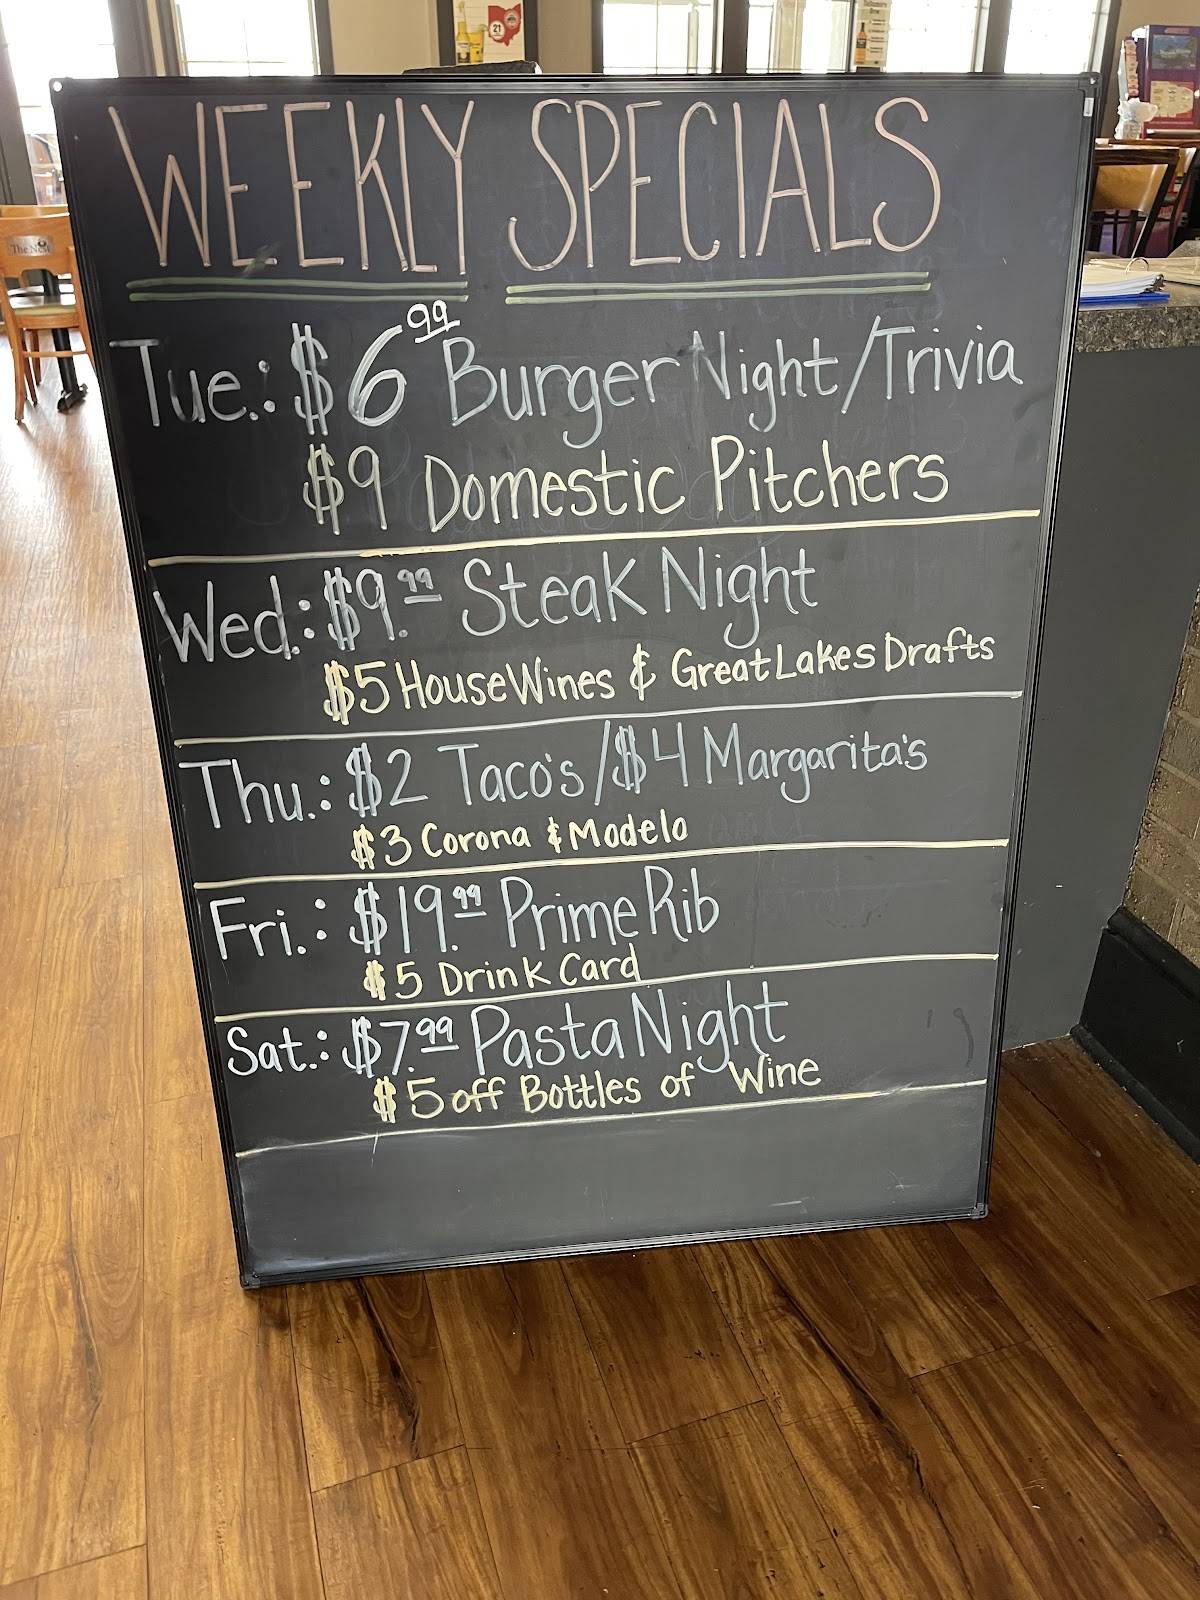 WEEKLY SPECIALS
Tue.: $6 99 Burger Night/Trivia
$9 Domestic Pitchers
Wed.: $9.99 Steak Night
$5 House Wines & Great Lakes Drafts
Thu.: $2 Taco's/$4 Margarita's
$3 Corona & Modelo
Fri.: $19.99 Prime Rib
$5 Drink Card
Sat.: $7.99 Pasta Night
$5 off Bottles of Wine
The Nest
21